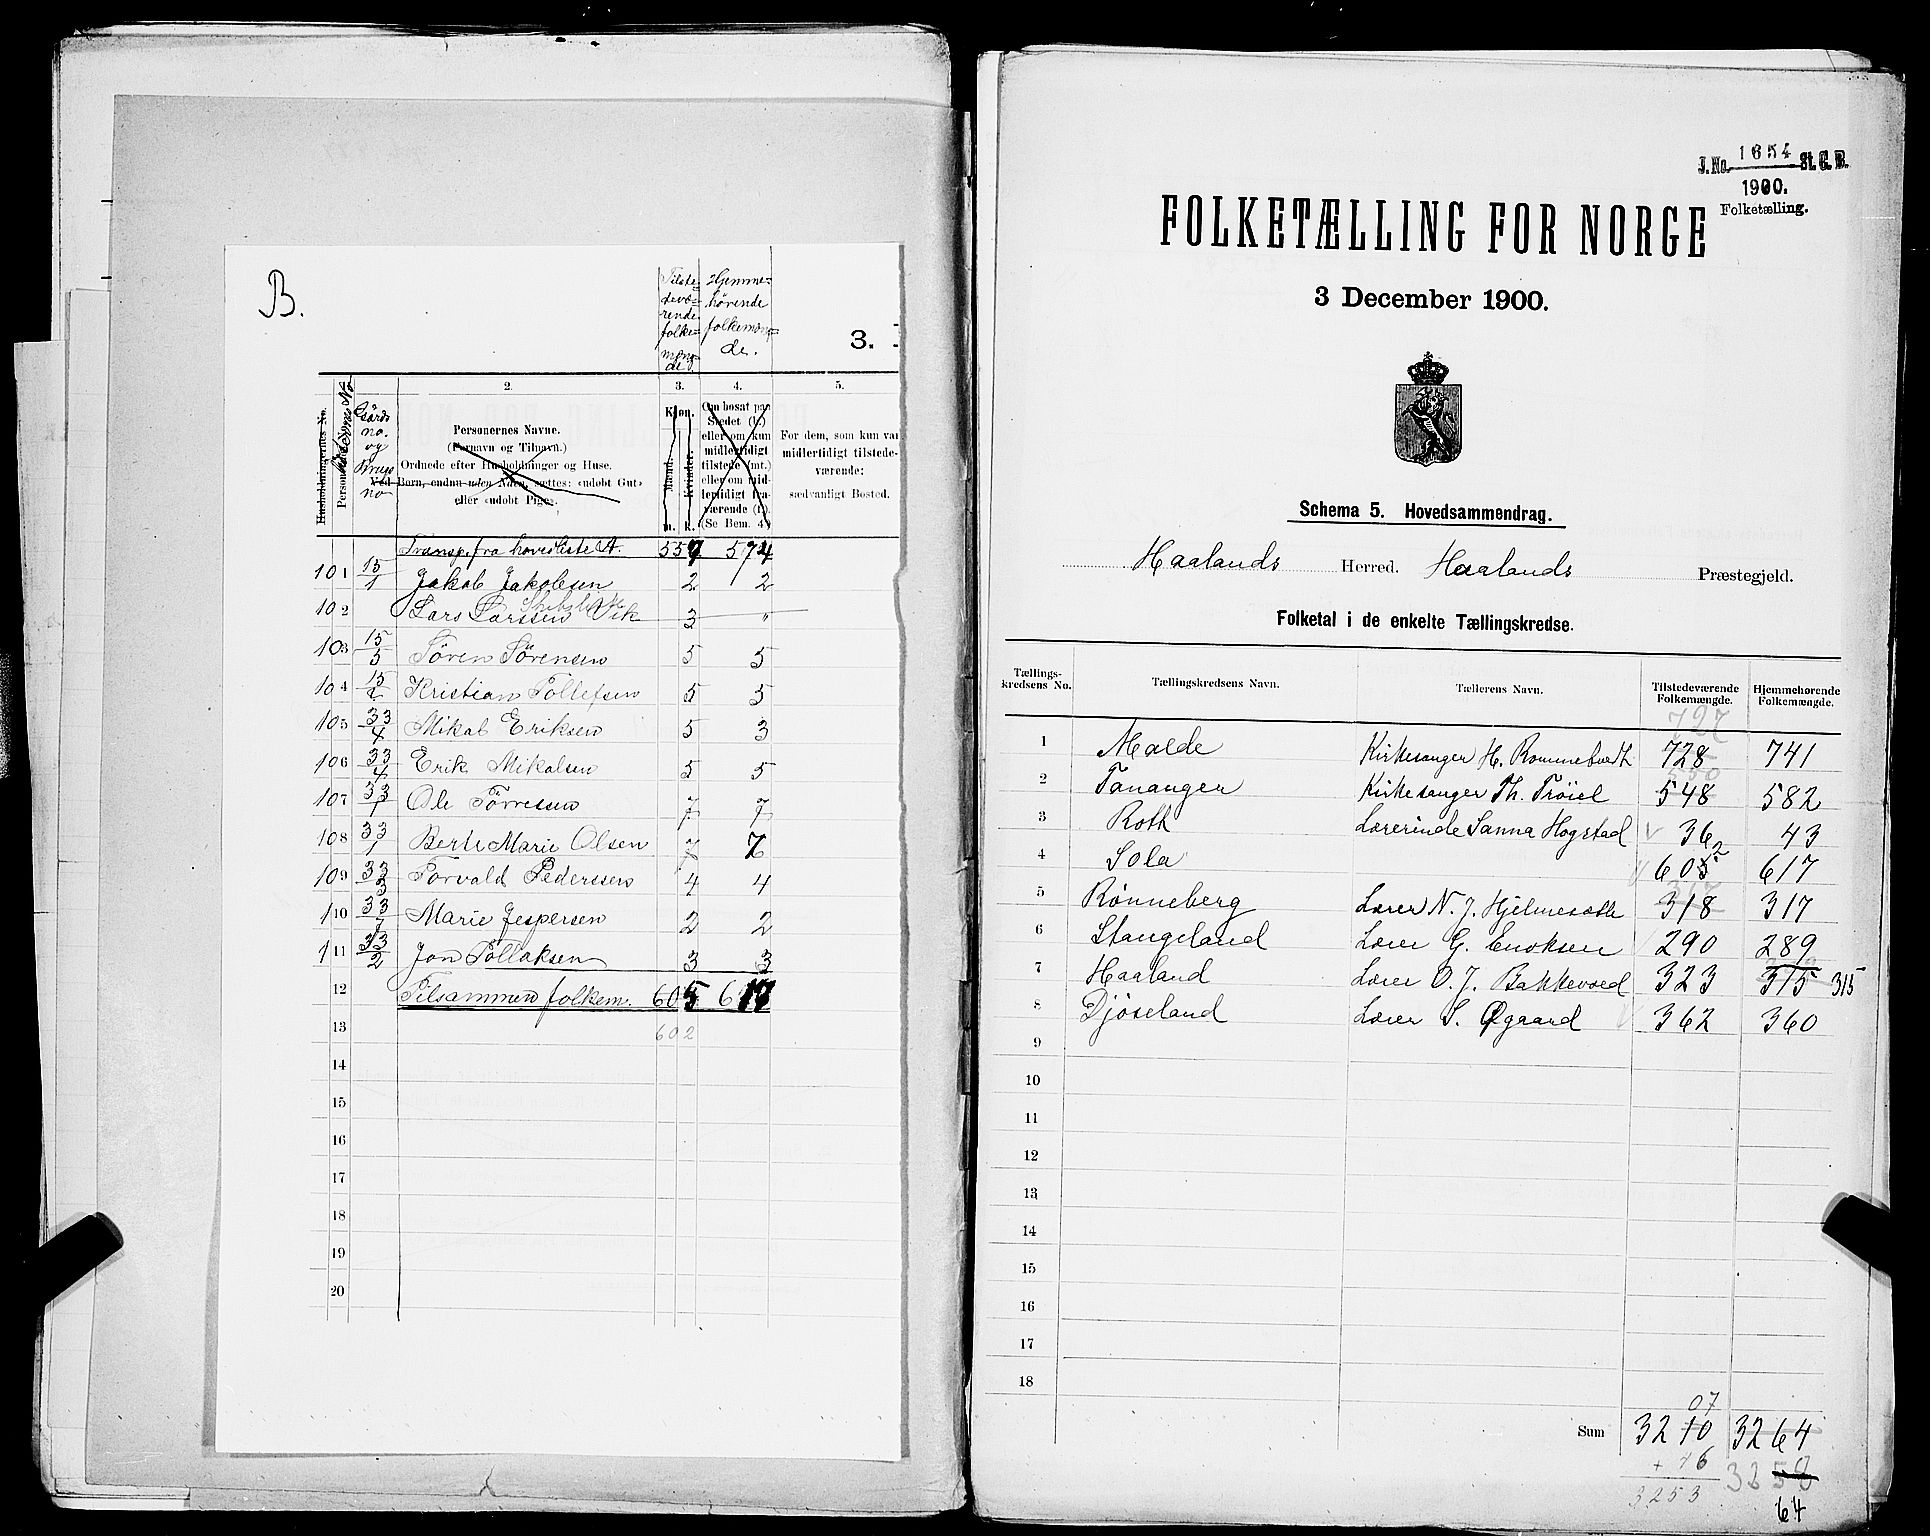 B.
Tilste=
devæ=
rende
folke=
mæng=
de
Hjemme=
hørende
folkemæng=
de.
3.
2. 3. 4. 5.
Husholdningernes No.
Personernes No.
Gårds
no.
og
Brugs
no
Personernes Navne.
(Fornavn og Tilnavn.)
Ordnede efter Husholdninger og Huse.
Ved Børn, endnu uden Navn, sættes: «udøbt Gut»
eller «udøbt Pige».
Kjøn.
Mænd. Kvinder.
m. k.
Om bosat paa
Stedet (b.)
eller om kun
midlertidigt
tilstede (mt.)
eller om mid-
lertidigt fra-
værende (f.)
(Se Bem. 4)
For dem, som kun var
midlertidigt tilstede-
værende:
sædvanligt Bosted.
Transp. fra hovedliste A. 557 574
101 15/1 Jakob Jakobsen 2 2
102 Lars Larssen Vik 3 "
103 15/5 Tören Sörensen 5 5
104 15/2 Kristian Tollefsen 5 5
105 33/4 Mikal Eriksen 5 3
106 33/4 Erik Mikalsen 5 5
107 33/1 Ole Törressen 7 7
108 33/1 Berte Marie Olsen 7 7
109 33/3 Torvald Pederssen 4 4
110 33/7 Marie Jespersen 2 2
111 33/2 Jon Tollaksen 3 3
12 Tilsammen folkem. 605 617
13 602
14
15
16
17
18
19
20
J. No. 1654 St. C. B.
1900.
Folketælling.
FOLKETÆLLING FOR NORGE
3 December 1900.
Schema 5. Hovedsammendrag.
Haalands Herred. Haalands Præstegjeld.
Folketal i de enkelte Tællingskredse.
Tællings-
kredsens No.
Tællingskredsens Navn.
Tællerens Navn.
Tilstedeværende
Folkemængde.
Hjemmehørende
Folkemængde.
727
1 Malde Kirkesanger H. Rommetvedt 728 741
550
2 Tananger Kirkesanger Th. Tröiel 548 582
3 Roth Lærerinde Sanna Hogstad 36 43
2
4 Sola 605 617
317
5 Rønneberg Lærer N. J. Hjelmesæth 318 317
6 Stangeland Lærer G. Enoksen 290 289
7 Haaland Lærer O. J. Bakkevold 323 315 315
8 Djøseland Lærer S. Øgaard 362 360
9
10
11
12
13
14
15
16
17
18
07
Sum 3210 3264
+ 46
3253
64